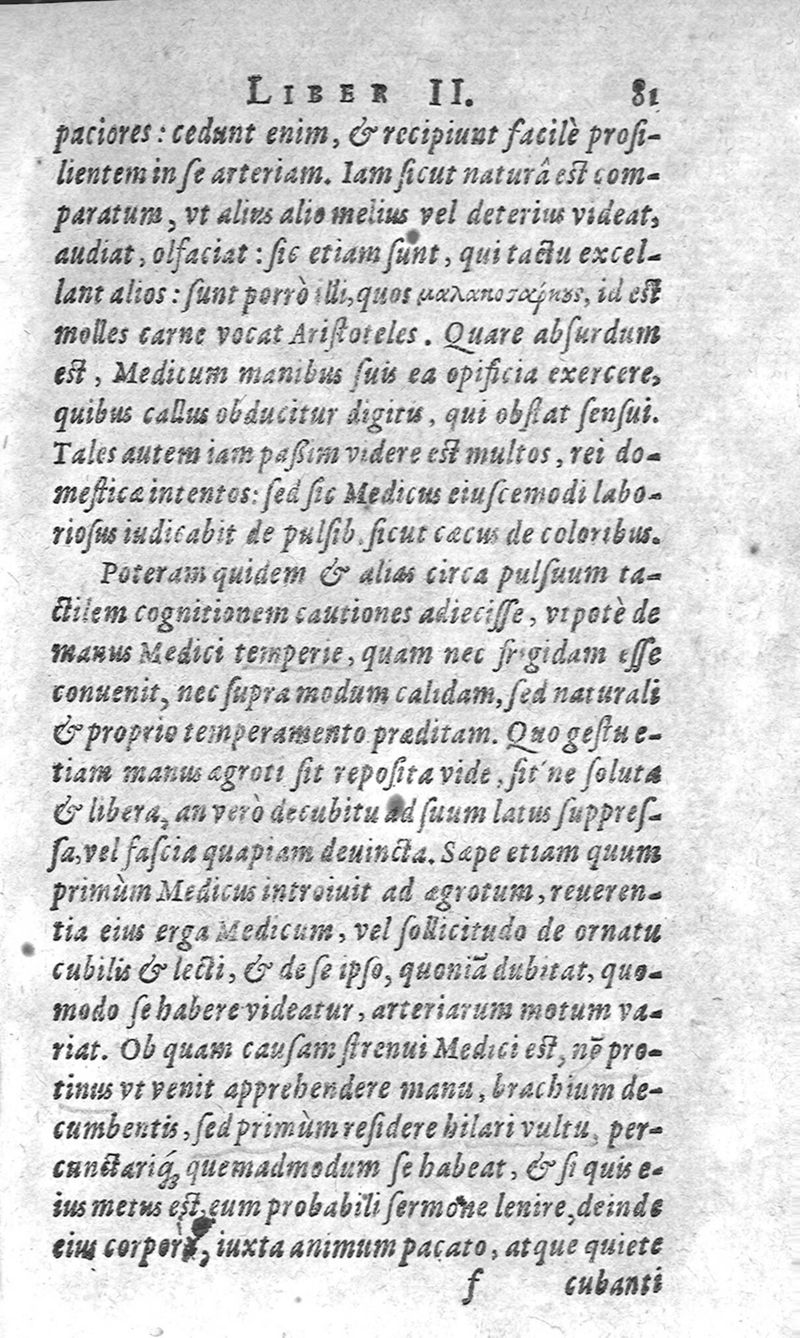 LIBER II. 81
paciores : cedunt enim, & recipiunt facilè prosi-
lientem in se arteriam. Iam sicut naturâ est com-
paratum, vt alius alio melius vel deterius videat,
audiat, olfaciat : sic etiam sunt, qui tactu excel-
lant alios : sunt porrò illi, quos μαλακοσάρκους, id est
molles carne vocat Aristoteles. Quare absurdum
est, Medicum manibus suis ea opificia exercere,
quibus callus obducitur digitis, qui obstat sensui.
Tales autem iam paßim videre est multos, rei do-
mesticæ intentos: sed sic Medicus eiuscemodi labo-
riosus iudicabit de pulsib. sicut cæcus de coloribus.
Poteram quidem & alias circa pulsuum ta-
ctilem cognitionem cautiones adiecisse, vtpotè de
manus Medici temperie, quam nec frigidam esse
conuenit, nec supra modum calidam, sed naturali
& proprio temperamento præditam. Quo gestu e-
tiam manus ægroti sit reposita vide, sit'ne soluta
& libera, an verò decubitu ad suum latus suppres-
sa, vel fascia quapiam deuincta. Sæpe etiam quum
primùm Medicus introiuit ad ægrotum, reueren-
tia eius erga Medicum, vel sollicitudo de ornatu
cubilis & lecti, & de se ipso, quoniã dubitat, quo-
modo se habere videatur, arteriarum motum va-
riat. Ob quam causam strenui Medici est, nõ pro-
tinus vt venit apprehendere manu, brachium de-
cumbentis, sed primùm residere hilari vultu, per-
cunctariq́; quemadmodum se habeat, & si quis e-
ius metus est, eum probabili sermone lenire, deinde
eius corpori, iuxta animum pacato, atque quiete
f cubanti